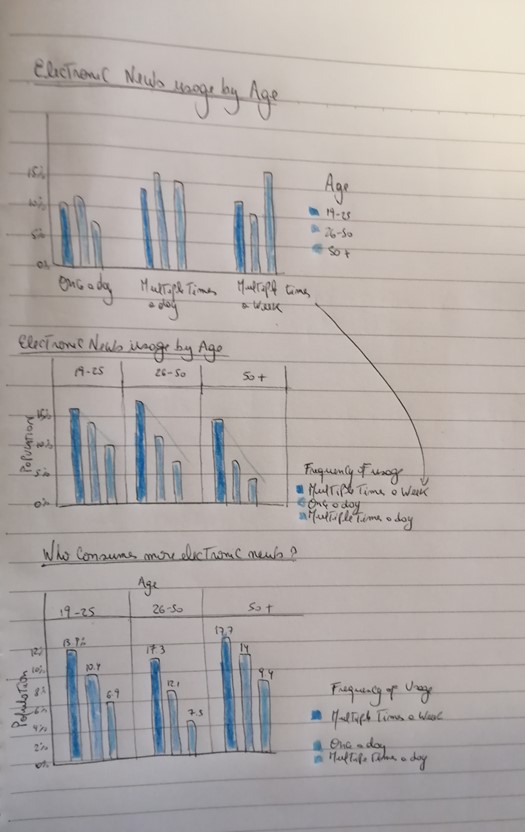 Electronic News usage by Age
15%
10%
5%
0%
Once a day
Multiple Times
a day
Multiple times
a week
Age
19-25
26-50
50+
Electronic News usage by Age
19-25 26-50 50+
Population
15%
10%
5%
0%
Frequency of usage
Multiple Time a Week
Once a day
Multiple Time a day
Who Consumes more electronic news?
Age
19-25 26-50 50+
13.9% 10.9 6.9
17.3 12.1 7.5
17.7 14 9.4
Population
12%
10%
8%
6%
4%
2%
0%
Frequency of Usage
Multiple Times a Week
Once a day
Multiple Time a day